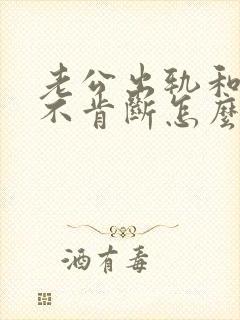 老公出轨和
不肯斷怎麼
酒有毒